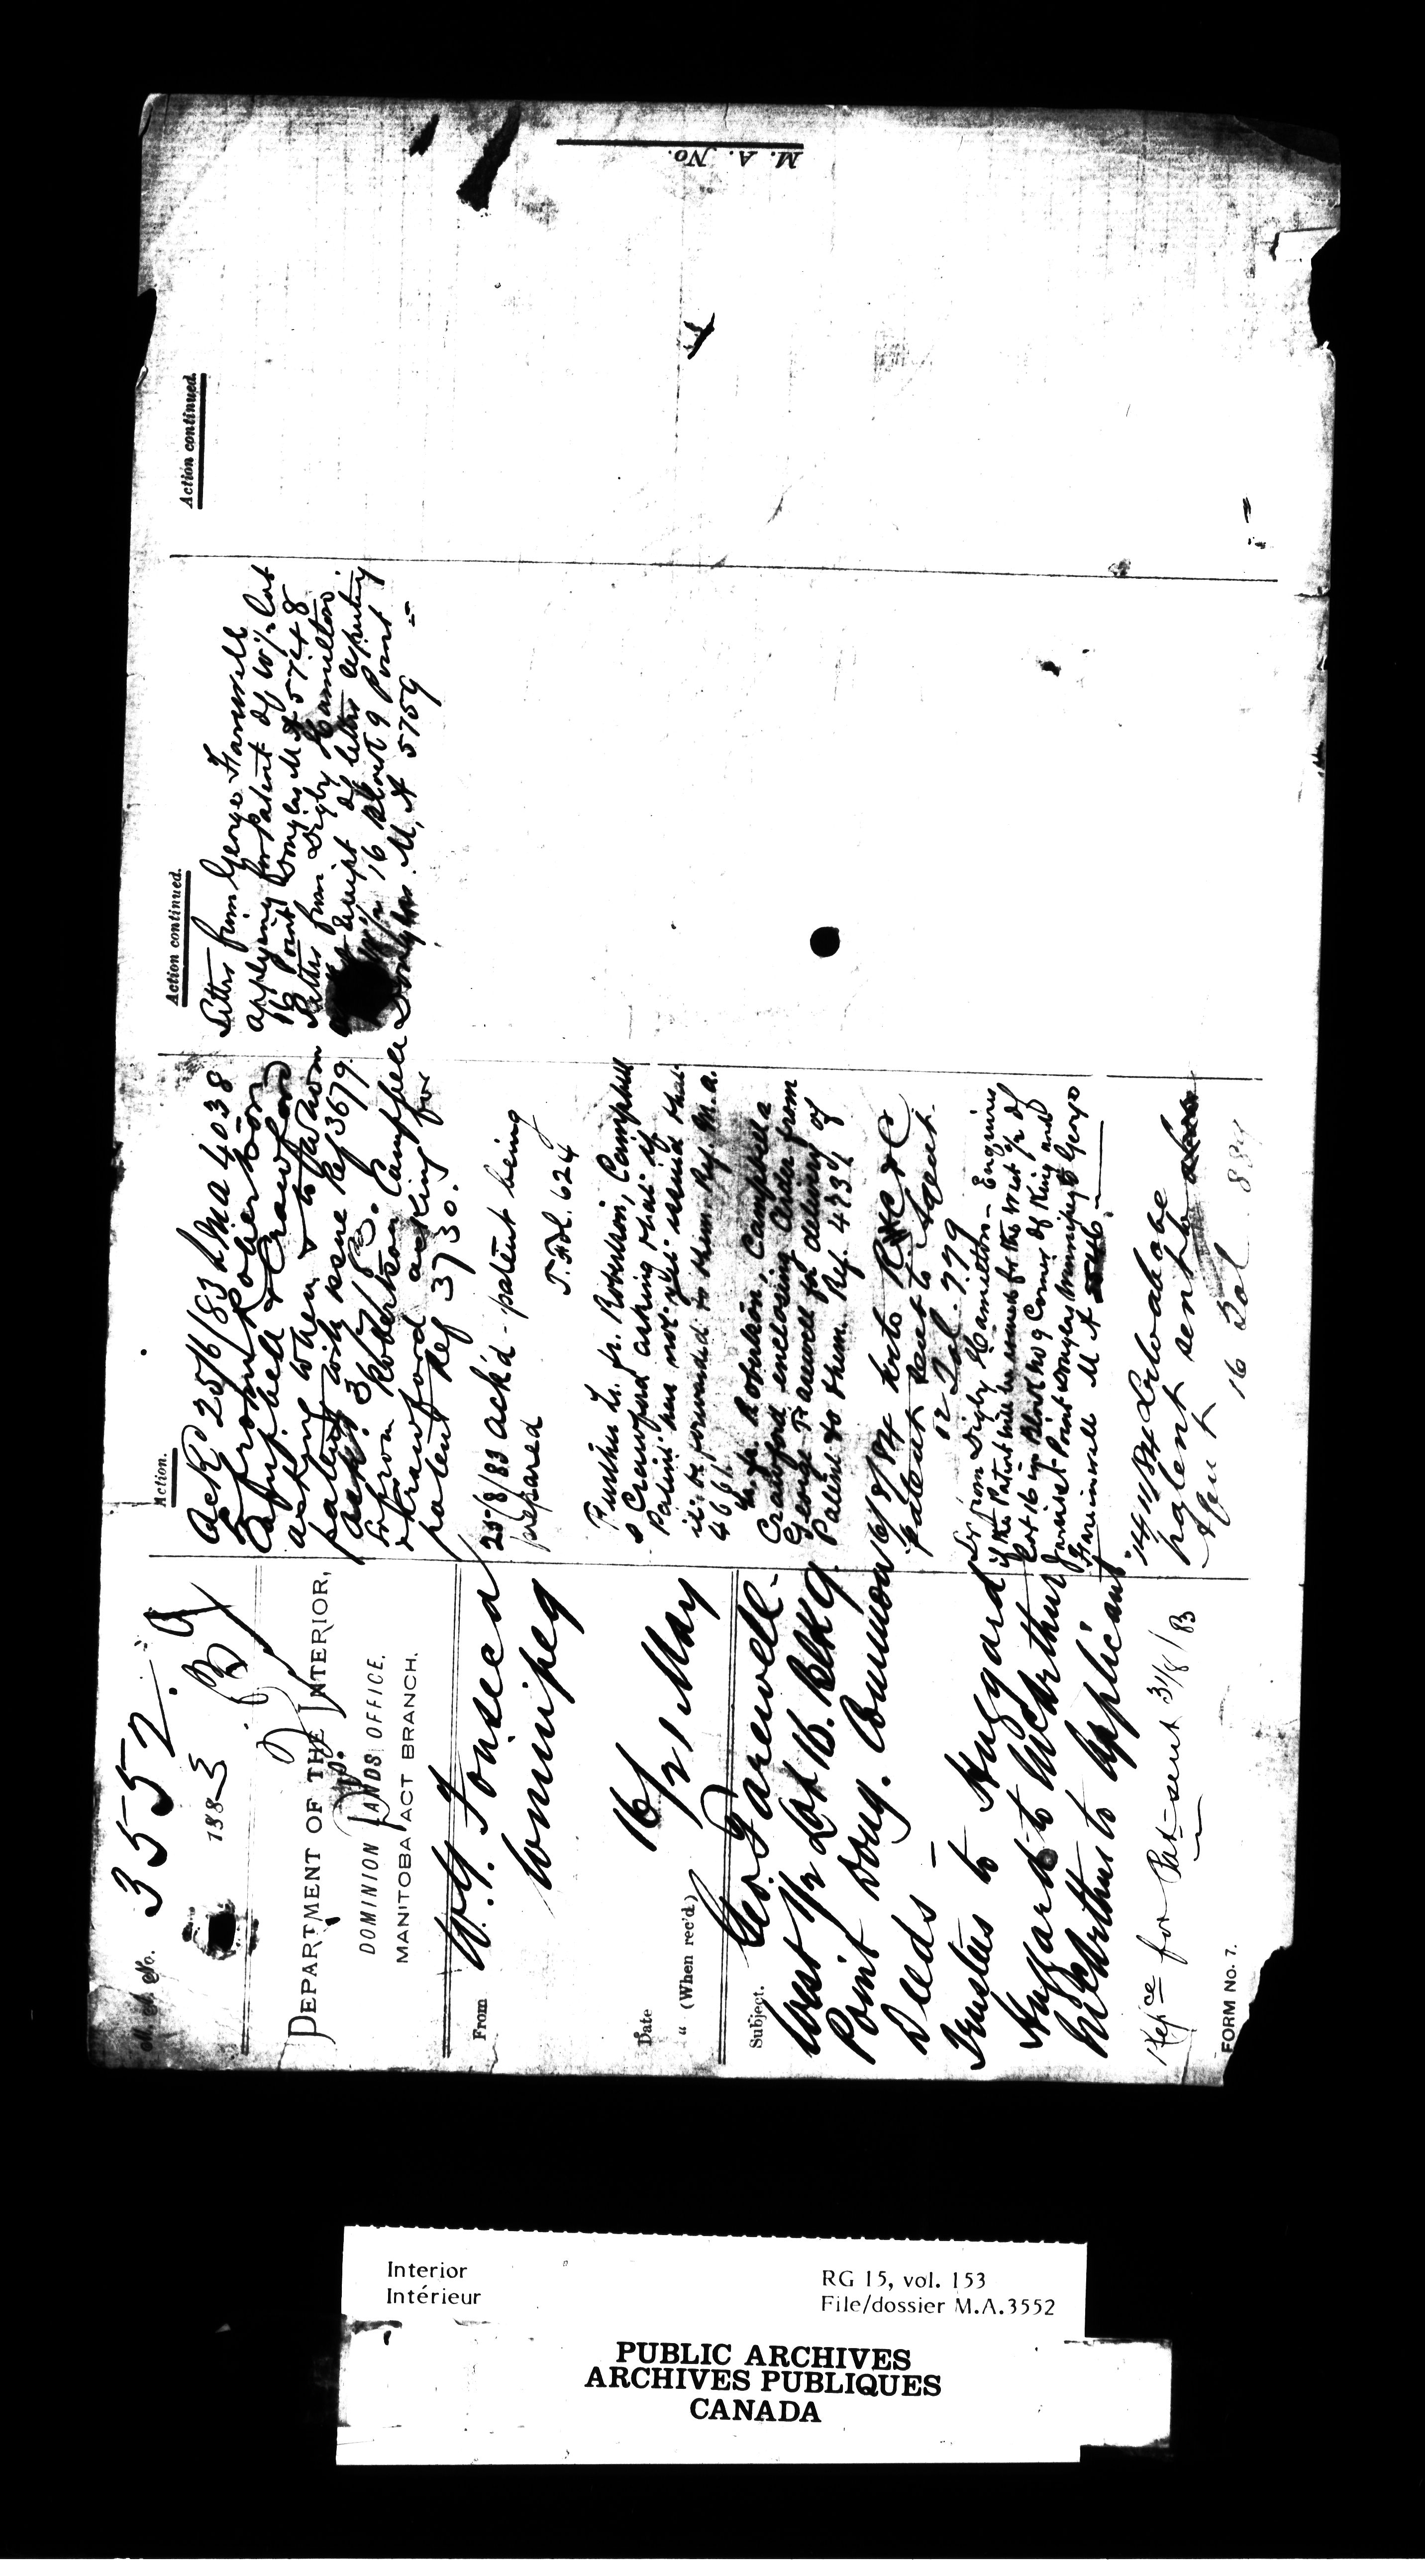 No. 3552.
1883
DEPARTMENT OF THE INTERIOR,
DOMINION LANDS OFFICE,
MANITOBA ACT BRANCH.
From W. G. Fonseca
Winnipeg
Date 16/21 May
" (When rec'd.)
Subject. Geo. Farewell -
West 1/2 Lot 16. BLK 9.
Point Doug. Common
Deeds -
Trustees to Huggard
Huggard to McArthur
McArthur to Applicant
Repce for Pat- sent 31/8/83
FORM No. 7.
Action.
Ack'd 25/6/83 L Ma 4038
from Robertson
Campbell & Crawford
asking when & to whom
patent will issue Ref 3679.
from Robertson Campbell
& Crawford asking for
patent Ref 3730.
25/8/83 ack'd - patent being
prepared T. Fol. 624
Further Lr. fr. Robertson, Campbell
& Crawford asking that if
Patent has not yet issued that
it be forwarded to them Ref. M.A.
4661
Lr. fr. Robertson, Campbell &
Crawford enclosing Order from
George Farewell for delivery of
Patent to them. Ref. 4234
6/8/84 to R C & C
patent sent to Agent.
12 Fol. 779
Lr from Digby Hamilton - Enquiries
if the Patent will be issued for the West 1/2 of
Lot 16 in Block no 9 Corner of King and
Point Douglas Winnipeg to George
M A 5546
14/11/84
patent sent to
Agent 16 Fol 889
Action continued.
Letter from George Farewell
applying for Patent of W 1/2 Lot
16 Point Douglas M A 5748
Letter from Digby Hamilton
receipt of letter respecting
W 1/2 16 Block 9 Point
Douglas. M. A 5759
Action continued.
M. A. No.
Interior
Intérieur
RG 15, vol. 153
File/dossier M.A.3552
PUBLIC ARCHIVES
ARCHIVES PUBLIQUES
CANADA